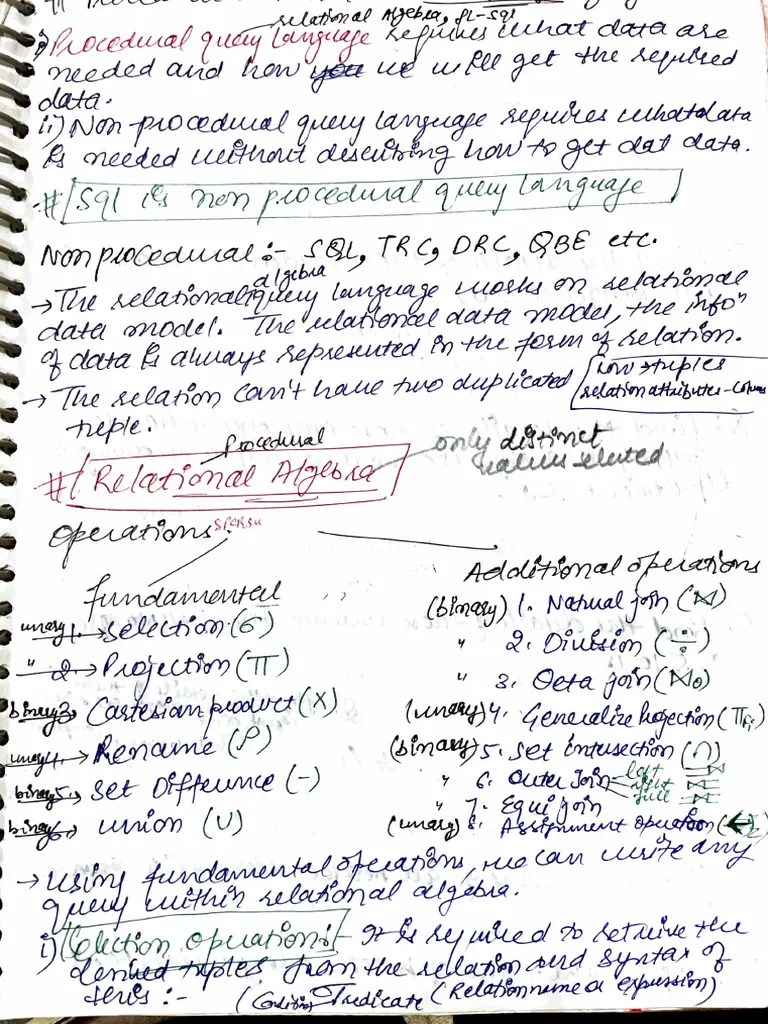 relational Algebra, PL-SQL
i) Procedural query language requires what data are
needed and how you we will get the required
data.
ii) Non procedural query language requires what data
is needed without describing how to get dat data.
# SQL is non procedural query language
Non procedural :- SQL, TRC, DRC, QBE etc.
algebra
→ The relational query language works on relational
data model. The relational data model, the infoⁿ
of data is always represented in the form of relation.
→ The relation can't have two duplicated
tuple.
row → tuples
relation attributes - column
Procedural
# Relational Algebra
only distinct
values selected
Operations
fundamental
unary 1. → Selection (σ)
" 2 → Projection (π)
binary 3. → Cartesian product (X)
unary 4. → Rename (ρ)
binary 5. → Set Difference (-)
binary 6. → union (U)
Additional operations
(binary) 1. Natural join (⋈)
" 2. Division (÷)
" 3. Oeta join (⋈θ)
(unary) 4. Generalize Projection (π)
(binary) 5. Set intersection (∩)
" 6. Outer Join left ⟕
right ⟖
full ⟗
" 7. Equi join
(unary) 8. Assignment operation (←)
→ Using fundamental operations, we can write any
query within relational algebra.
i) Selection operation :- It is required to retrieve the
desired tuples from the relation and syntax of
this :-
(Condition) Predicate (Relation name or expression)